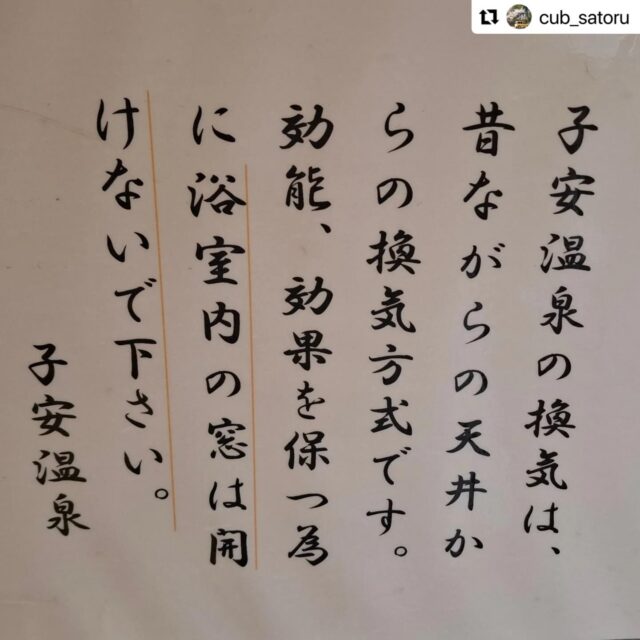 cub_satoru
子安温泉の換気は、
昔ながらの天井か
らの換気方式です。
効能、効果を保つ為
に浴室内の窓は開
けないで下さい。
子安温泉